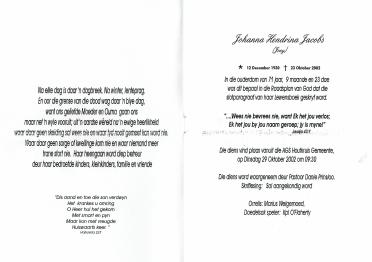 Na elke dag is daar 'n dagbreek. Na winter, lenteprag.
En oor die grense van die dood wag daar 'n blye dag,
want ons geliefde Moeder en Ouma gaan ons
maar net 'n wyle vooruit; uit 'n aardse wêreld na 'n ewige heerlikheid
waar daar geen skeiding sal wees nie en waar tyd nooit gemeet kan word nie.
Waar daar geen sorge of kwellinge kan nie en waar niemand meer
trane stort nie. Haar heengaan word diep betreur
deur haar bedroefde kinders, kleinkinders, familie en vriende
"Dis aand en toe die son verdwyn
Het krankes u omring
O Heer hul het gekom
Met smart en pyn
Maar kon met vreugde
Huiswaarts keer."
Johanna Hendrina Jacobs
(Joey)
★ 12 Desember 1930 † 23 Oktober 2002
In die ouderdom van 71 jaar, 9 maande en 23 dae
was dit bepaal in die Raadsplan van God dat die
slotparagraaf van haar Lewensboek geskryf word.
"...Wees nie bevrees nie, want Ek het jou verlos;
Ek het jou by jou naam geroep; jy is myne!"
Jesaja 43:1
Die diens vind plaas vanuit die AGS Hautrus Gemeente,
op Dinsdag 29 Oktober 2002 om 09:30.
Die diens word waargeneem deur Pastoor Danie Prinsloo.
Stafliasing: Sal aangekondig word
Orrelis: Marius Weigemoed.
Doedelsak speler: Kpl O'Flaherty